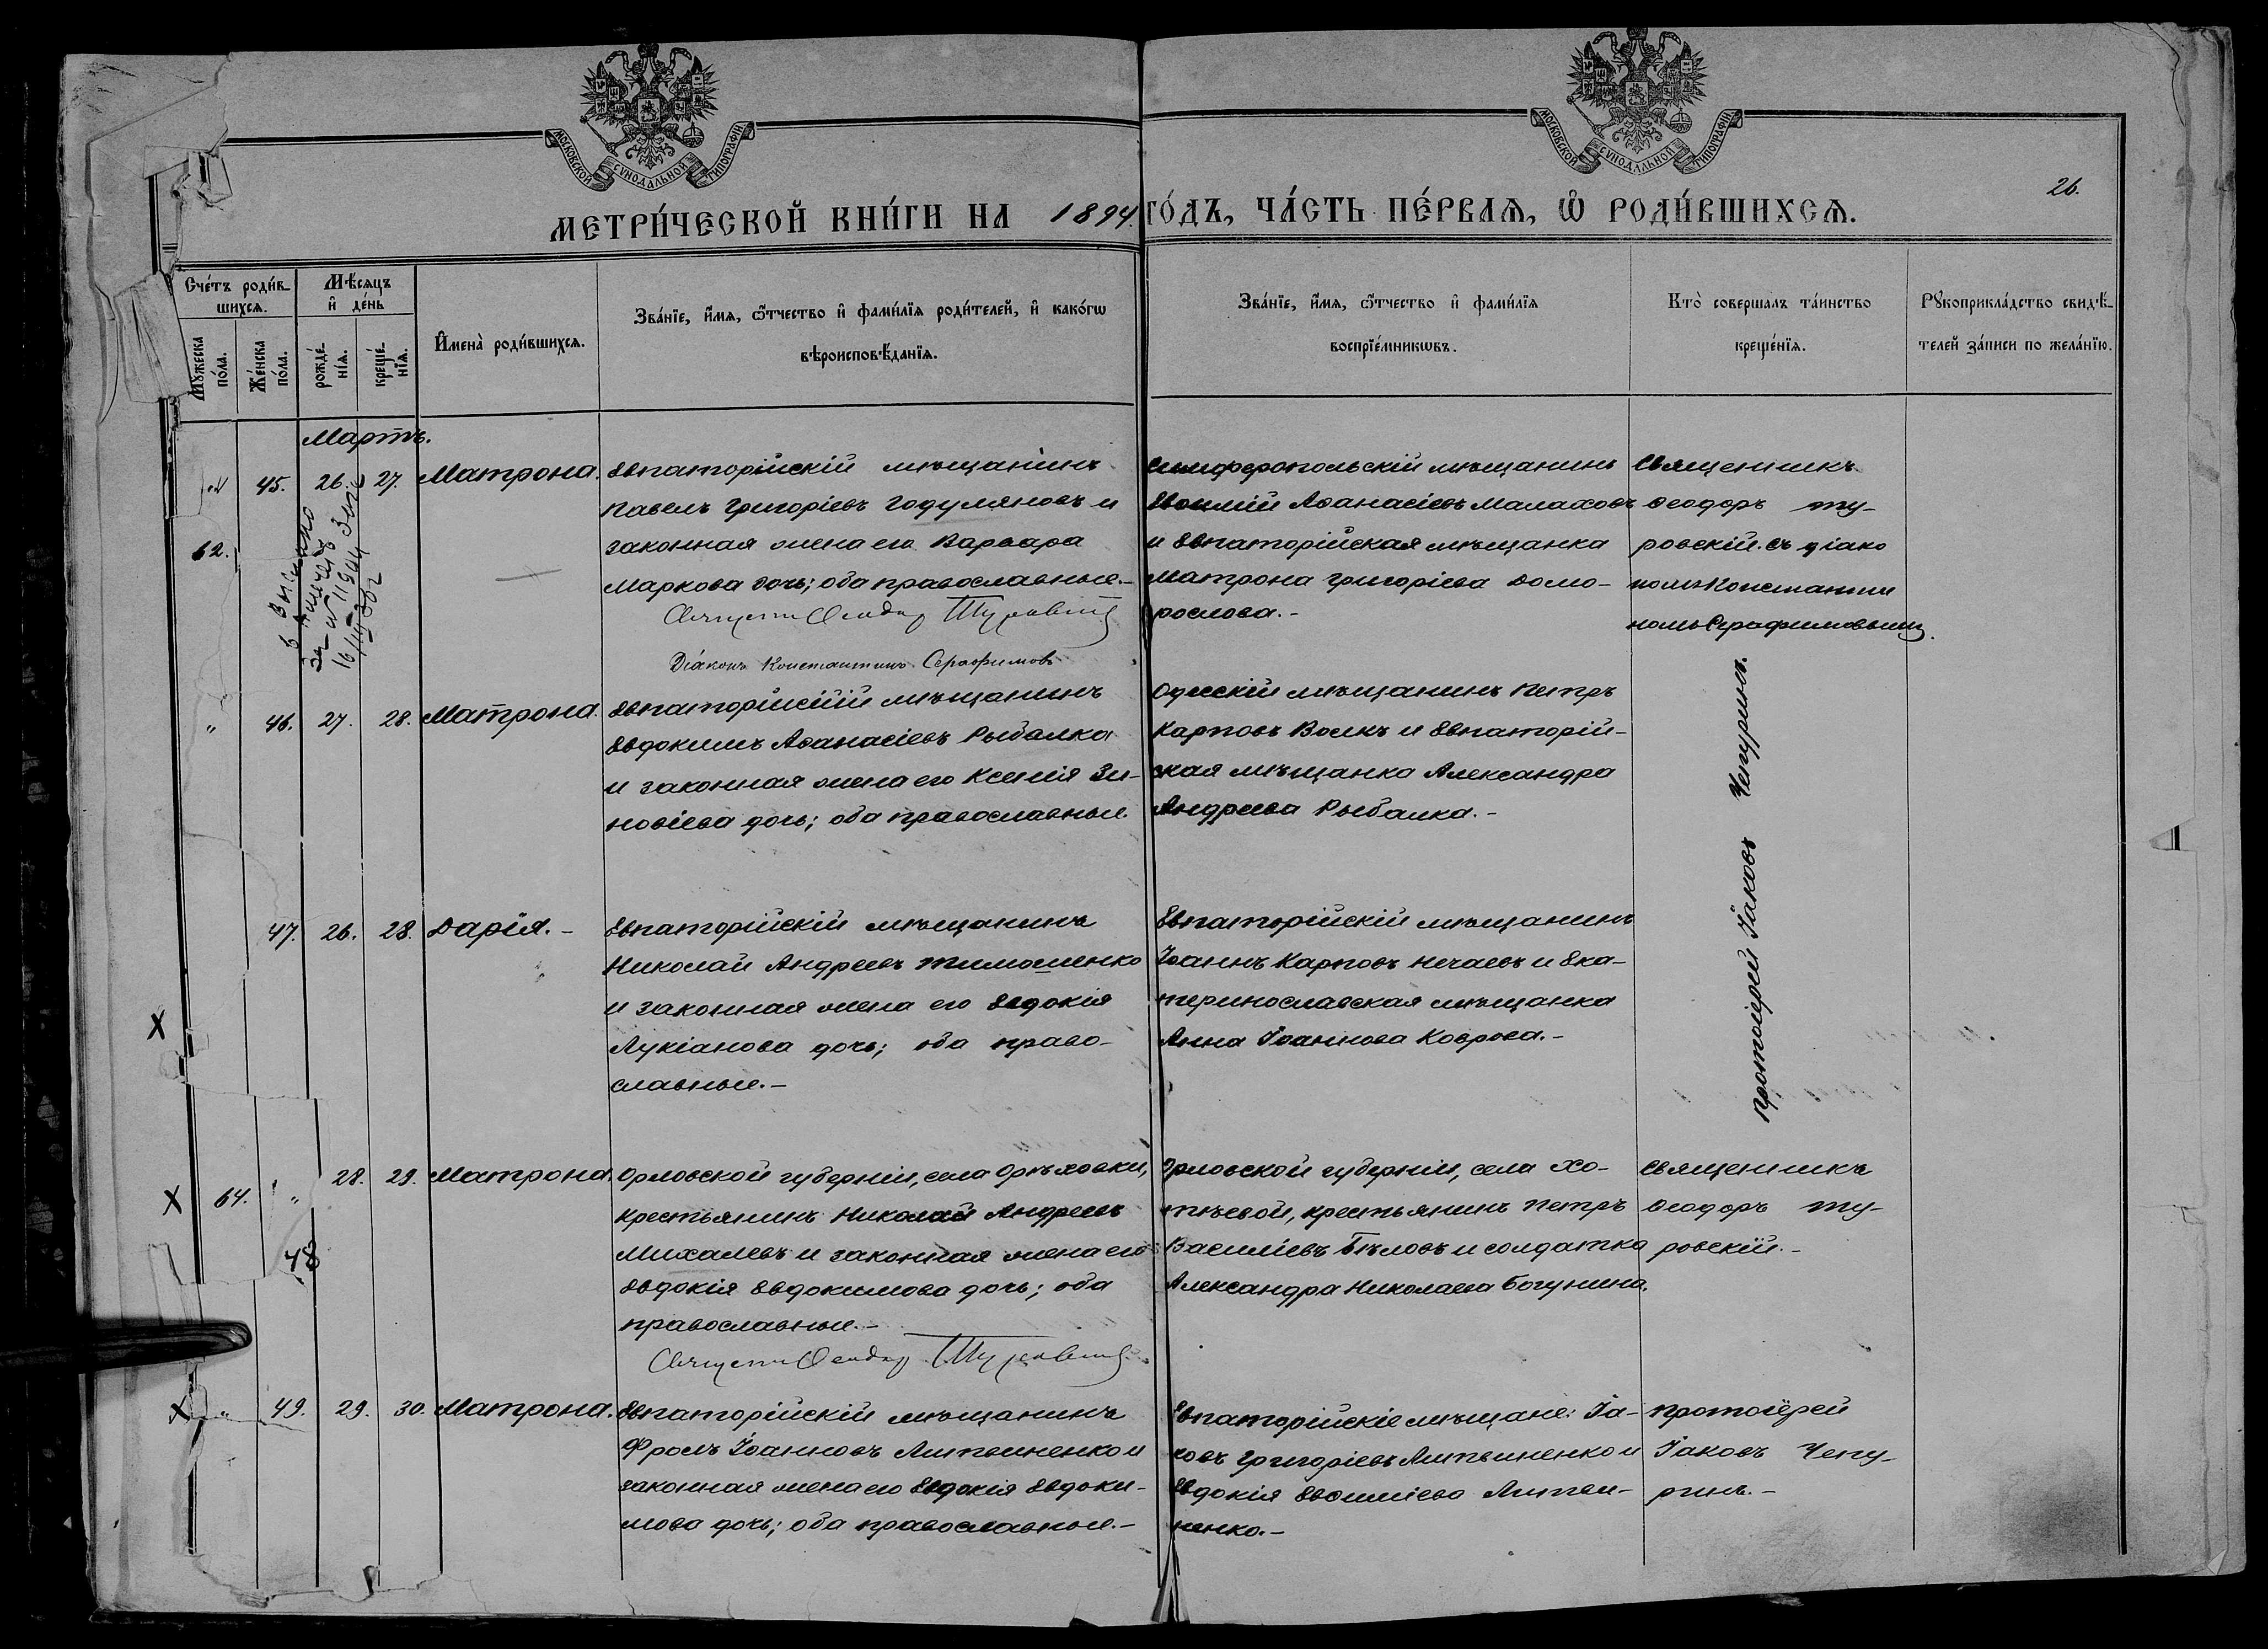 МОСКОВСКОЙ СѴНОДАЛЬНОЙ ТИПОГРАФІИ
МОСКОВСКОЙ СѴНОДАЛЬНОЙ ТИПОГРАФІИ
26.
МЕТРИ́ЧЕСКОЙ КНИ́ГИ НА 1894. ГО́ДЪ, ЧА́СТЬ ПЕ́РВАѦ, Ѿ РОДИ́ВШИХСѦ.
Сче́тъ роди́в-
шихсѧ.
Мѣ́сѧцъ
и҆ де́нь
Мꙋ́жеска по́ла.
Же́нска по́ла.
рожде́-
нїѧ.
креще́-
нїѧ.
И҆мена̀ роди́вшихсѧ.
Зва́нїе, и҆́мѧ, ѻ҆́тчество и҆ фами́лїѧ роди́телей, и҆ како́гѡ
вѣроисповѣ́данїѧ.
Зва́нїе, и҆́мѧ, ѻ҆́тчество и҆ фами́лїѧ
воспрїе́мникѡвъ.
Кто̀ соверша́лъ та́инство
креще́нїѧ.
Рꙋкоприкла́дство свидѣ́-
телей за́писи по жела́нїю.
Мартъ.
45. 26. 27. Матрона.
62.
Евпаторійскій мѣщанинъ
Павелъ Григоріевъ Годуляновъ и
законная жена его Варвара
Маркова дочь; оба православные.-
Діаконъ Константинъ Серафимовъ
Симферопольскій мѣщанинъ
Евѳимій Аѳанасіевъ Малаховъ
и Евпаторійская мѣщанка
Матрона Григоріева Домо-
рослова.-
Священникъ
Ѳеодоръ Ту-
ровскій. съ діако
номъ Константи
номъ Серафимовымъ.
" 46. 27. 28. Матрона.
Евпаторійскій мѣщанинъ
Евдокимъ Аѳанасіевъ Рыбалка
и законная жена его Ксенія Зи-
новіева дочь; оба православные
Одесскій мѣщанинъ Петръ
Карповъ Волкъ и Евпаторій-
ская мѣщанка Александра
Андреева Рыбалка.-
протоіерей Іаковъ Чепуринъ.
47. 26. 28. Дарія.-
Евпаторійскій мѣщанинъ
Николай Андреевъ Тимошенко
и законная жена его Евдокія
Лукіанова дочь; оба право-
славные.-
Евпаторійскій мѣщанинъ
Іоаннъ Карповъ Нечаевъ и Ека-
теринославская мѣщанка
Анна Іоаннова Коврова.-
X
X 64. " 28. 29. Матрона.
48
Орловской губерніи, села Орѣховки,
крестьянинъ Николай Андреевъ
Михалевъ и законная жена его
Евдокія Евдокимова дочь; оба
православные.-
Орловской губерніи, села Хо-
тѣевой, крестьянинъ Петръ
Василіевъ Бѣловъ и солдатка
Александра Николаева Богунина.
Священникъ
Ѳеодоръ Ту-
ровскій.-
X " 49. 29. 30. Матрона.
Евпаторійскій мѣщанинъ
Фролъ Іоанновъ Литвиненко и
законная жена его Евдокія Евдоки-
мова дочь; оба православные.-
Евпаторійскіе мѣщане: Іа-
ковъ Григоріевъ Литвиненко и
Евдокія Евѳиміева Литви-
ненко.-
протоіерей
Іаковъ Чепу-
ринъ.-